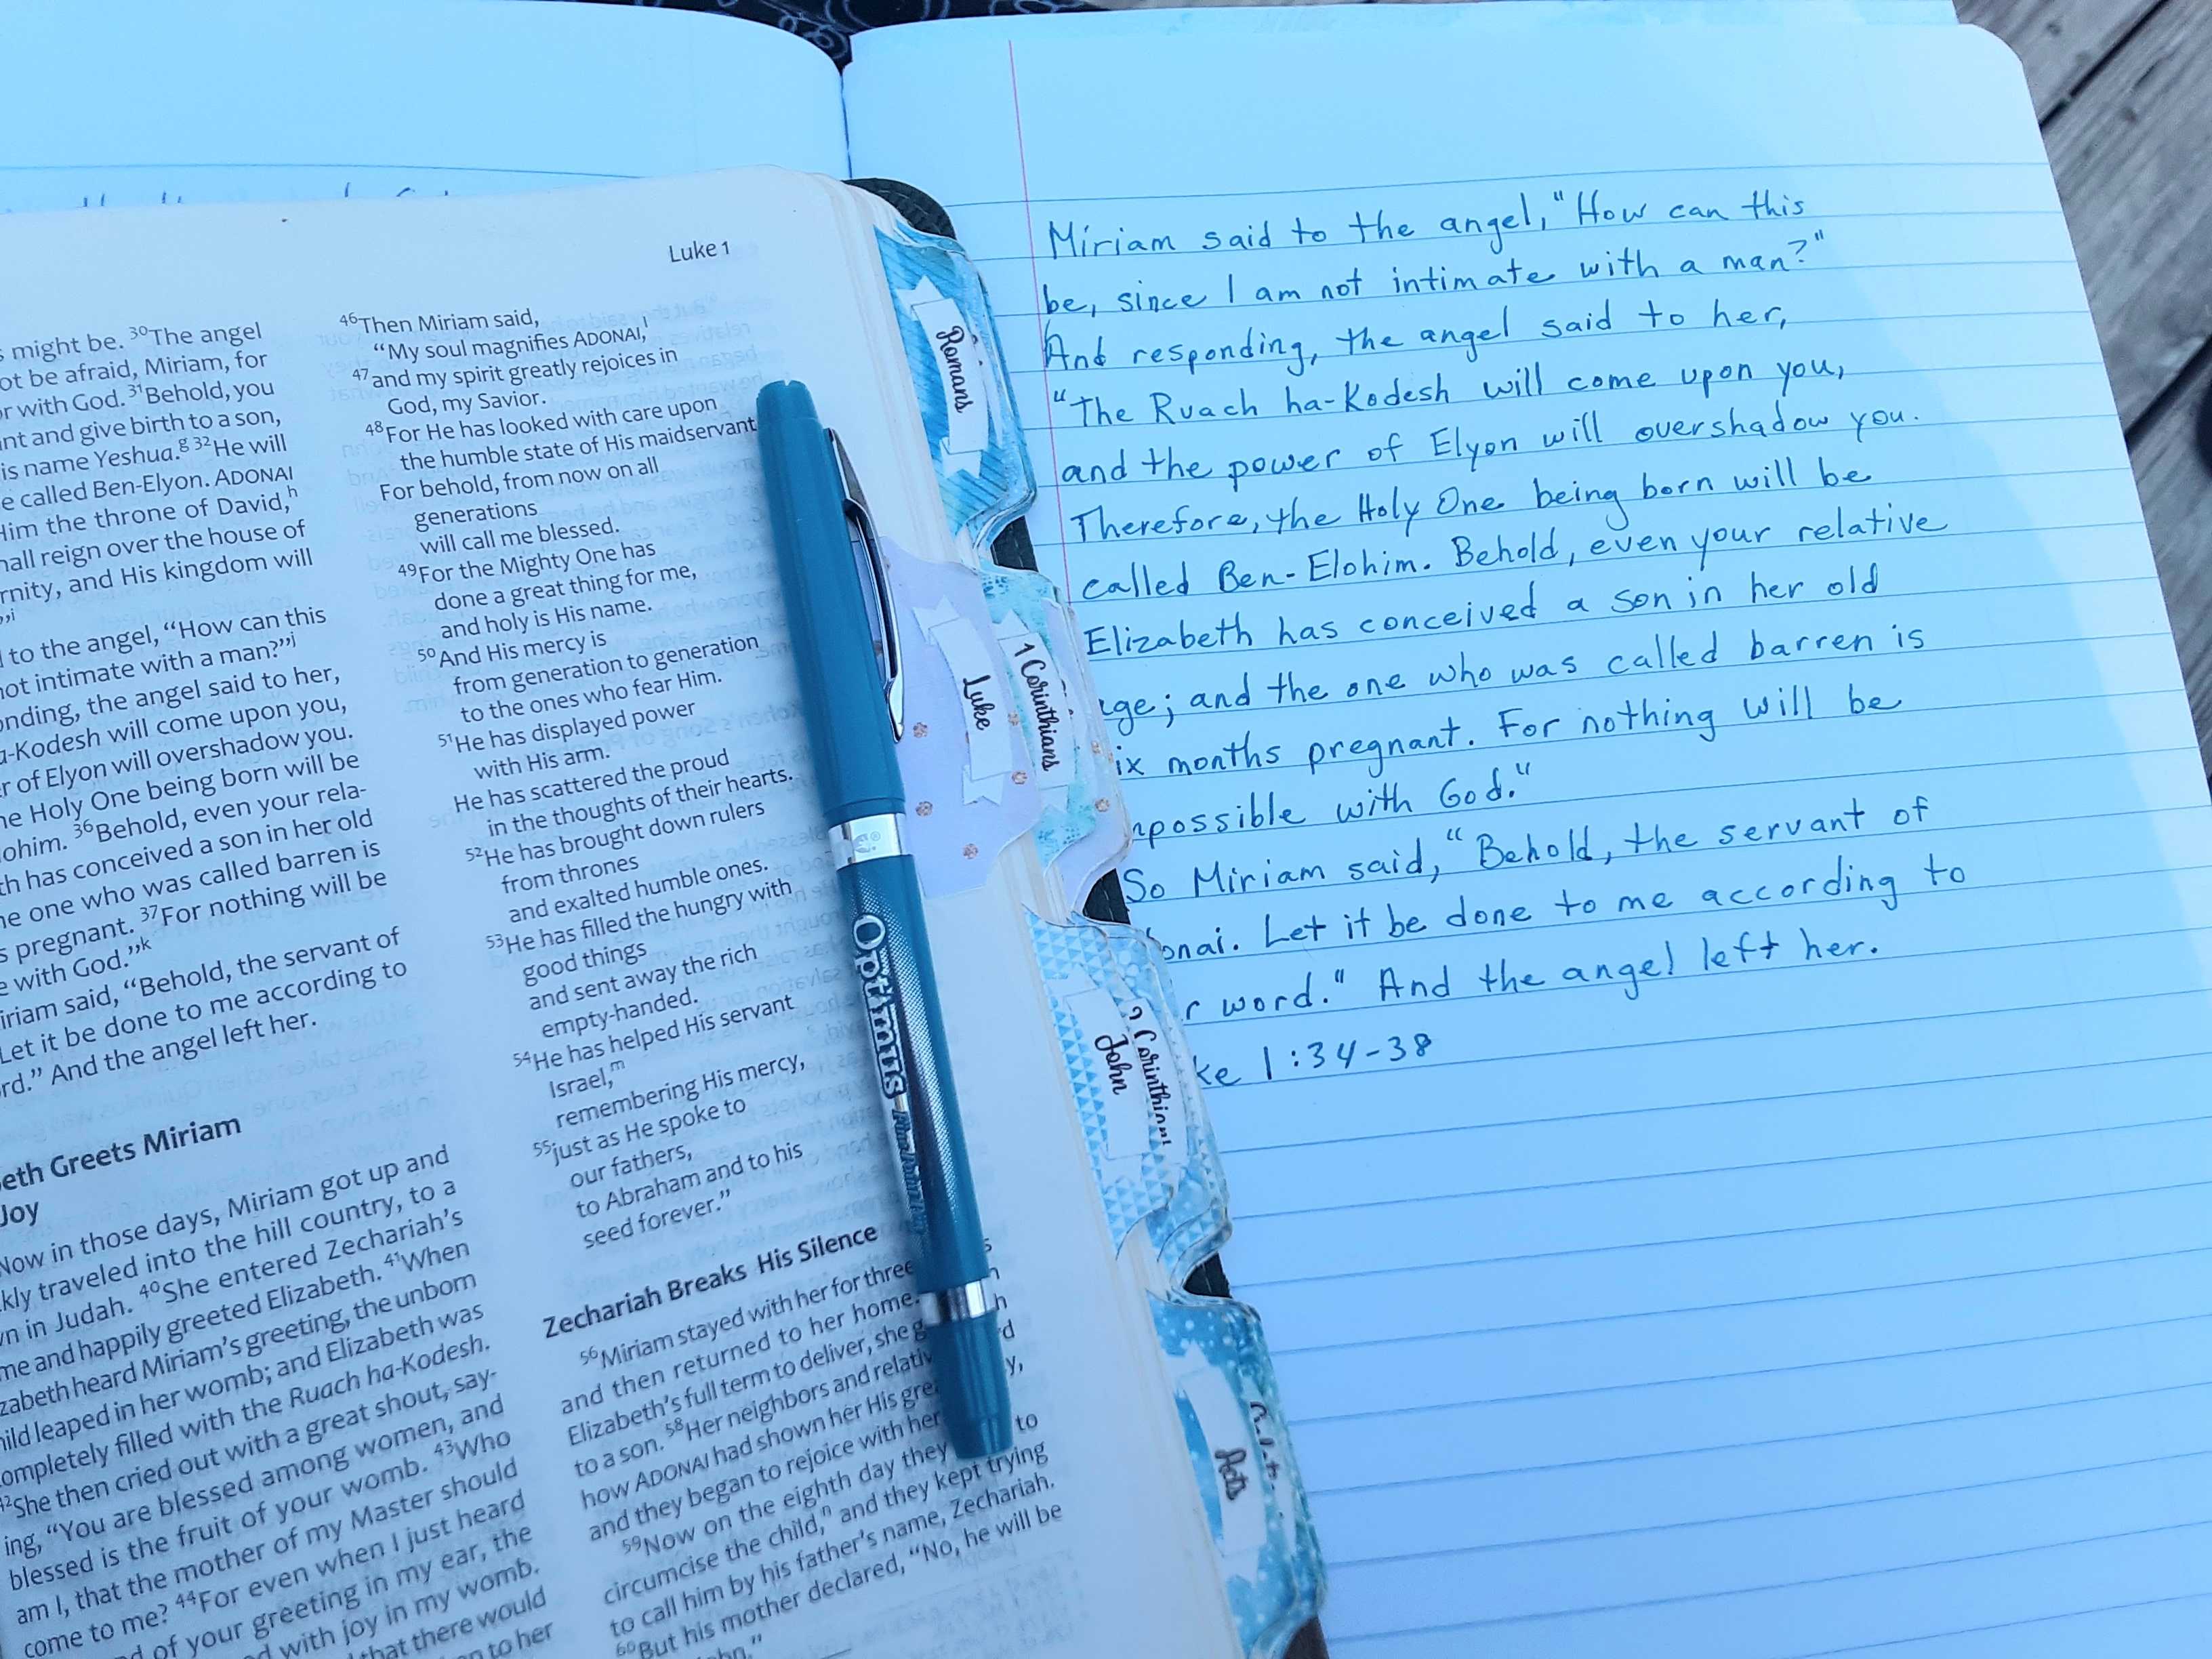 Luke 1
might be. ³⁰The angel
be afraid, Miriam, for
with God. ³¹Behold, you
and give birth to a son,
name Yeshua.ᵍ ³²He will
called Ben-Elyon. ADONAI
the throne of David,ʰ
reign over the house of
and His kingdom will
to the angel, “How can this
intimate with a man?”ʲ
the angel said to her,
will come upon you,
of Elyon will overshadow you.
Holy One being born will be
³⁶Behold, even your rela-
has conceived a son in her old
one who was called barren is
pregnant. ³⁷For nothing will be
with God.”ᵏ
said, “Behold, the servant of
Let it be done to me according to
And the angel left her.
Greets Miriam
Joy
Now in those days, Miriam got up and
traveled into the hill country, to a
in Judah. ⁴⁰She entered Zechariah’s
and happily greeted Elizabeth. ⁴¹When
heard Miriam’s greeting, the unborn
leaped in her womb; and Elizabeth was
filled with the Ruach ha-Kodesh.
⁴²She then cried out with a great shout, say-
ing, “You are blessed among women, and
blessed is the fruit of your womb. ⁴³Who
am I, that the mother of my Master should
come to me? ⁴⁴For even when I just heard
of your greeting in my ear, the
with joy in my womb.
that there would
to her
⁴⁶Then Miriam said,
“My soul magnifies ADONAI,ˡ
⁴⁷and my spirit greatly rejoices in
God, my Savior.
⁴⁸For He has looked with care upon
the humble state of His maidservant
For behold, from now on all
generations
will call me blessed.
⁴⁹For the Mighty One has
done a great thing for me,
and holy is His name.
⁵⁰And His mercy is
from generation to generation
to the ones who fear Him.
⁵¹He has displayed power
with His arm.
He has scattered the proud
in the thoughts of their hearts.
⁵²He has brought down rulers
from thrones
and exalted humble ones.
⁵³He has filled the hungry with
good things
and sent away the rich
empty-handed.
⁵⁴He has helped His servant
Israel,ᵐ
remembering His mercy,
⁵⁵just as He spoke to
our fathers,
to Abraham and to his
seed forever.”
Zechariah Breaks His Silence
⁵⁶Miriam stayed with her for three
and then returned to her home.
Elizabeth’s full term to deliver, she
to a son. ⁵⁸Her neighbors and
how ADONAI had shown her His
and they began to rejoice with her
⁵⁹Now on the eighth day they to
circumcise the child,ⁿ and they kept trying
to call him by his father’s name, Zechariah.
⁶⁰But his mother declared, “No, he will be
Optimus
Romans
Luke
1 Corinthians
John
2 Corinthians
Acts
Miriam said to the angel, "How can this
be, since I am not intimate with a man?"
And responding, the angel said to her,
"The Ruach ha-Kodesh will come upon you,
and the power of Elyon will overshadow you.
Therefore, the Holy One being born will be
called Ben-Elohim. Behold, even your relative
Elizabeth has conceived a son in her old
age; and the one who was called barren is
months pregnant. For nothing will be
with God."
So Miriam said, "Behold, the servant of
Let it be done to me according to
word." And the angel left her.
1:34-38